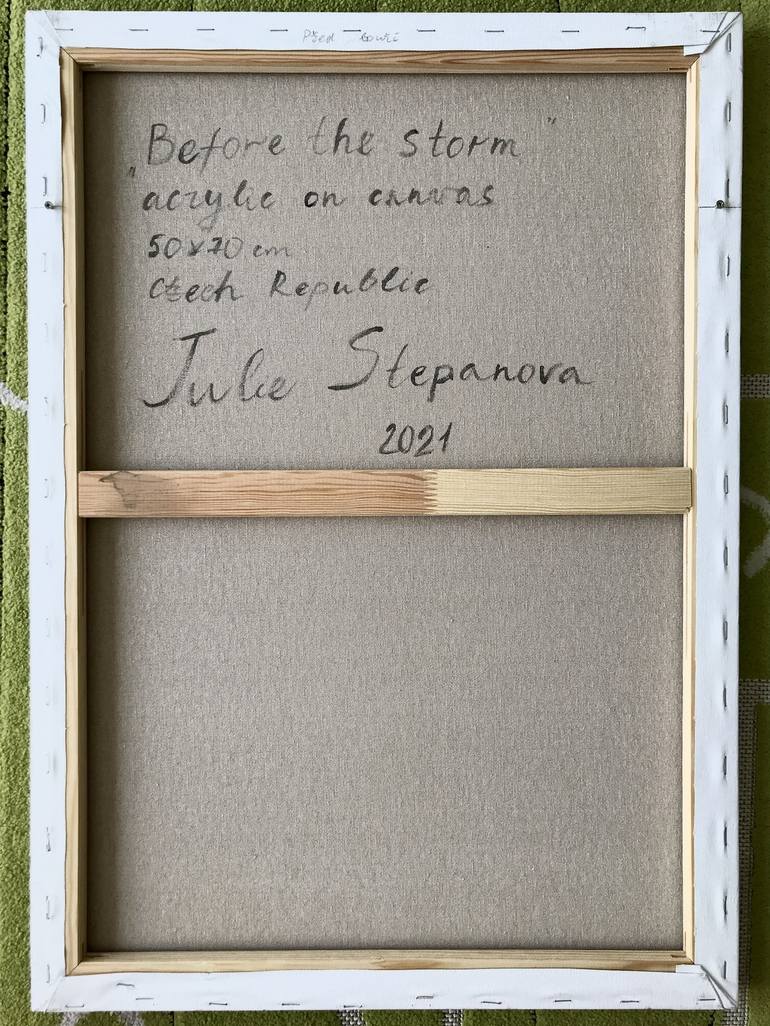 Před bouří
„Before the storm"
acrylic on canvas
50x70 cm
Czech Republic
Julie Stepanova
2021